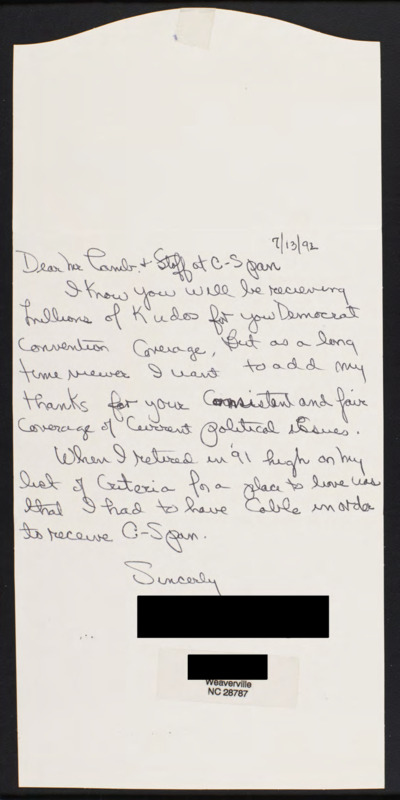 7/13/92
Dear Mr Lamb. & Staff at C-Span
I know you will be recieving
millions of Kudos for you Democrat
Convention Coverage, But as a long
time viewer I want to add my
thanks for your Consistent and fair
Coverage of Current political issues.
When I retired in '91 high on my
list of Criteria for a place to live was
that I had to have Cable in order
to receive C-Span.
Sincerly
Weaverville
NC 28787